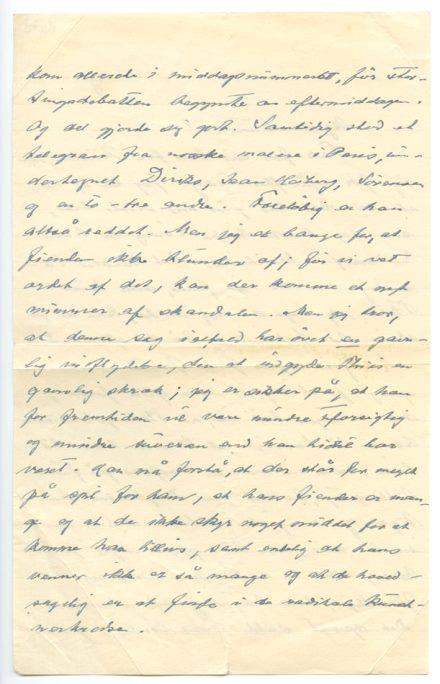 kom allerede i middagsnummeret, før Stor-
tingsdebatten begynte om eftermiddagen.
Og det gjorde sig godt. Samtidig stod et
telegram fra norske malere i Paris, un-
dertegnet Diriks, Jean Heiberg, Sörensen
og en to-tre andre. Foreløbig er han
altså reddet. Men jeg er bange for, at
fienden ikke blunder af; før vi vet
ordet af det, kan der komme et nyt
nummer af skandalen. Men jeg tror,
at denne sag i retned har övet en gavn-
lig indflydelse, den at indgyde Thiis en
gavnlig skræk; jeg er sikker på, at han
for fremtiden vil være mindre uforsigtig
og mindre suveræn end han hittil har
været. Han må forstå, at der står for meget
på spil for ham, at hans fiender er man-
ge og at de ikke skyr noget middel for at
komme ham tillivs, samt endelig at hans
venner ikke er så mange og at de hoved-
sagelig er at finde i de radikale kunst-
nerkredse.